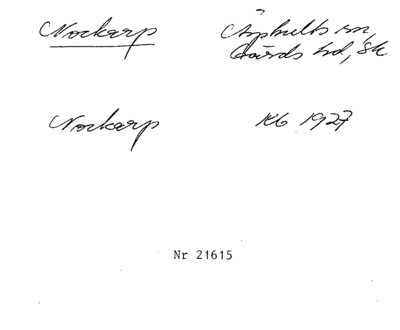 Nockarp Äsphults sn,
Gärds hd, Sk
Nockarp Kb 1927
Nr 21615